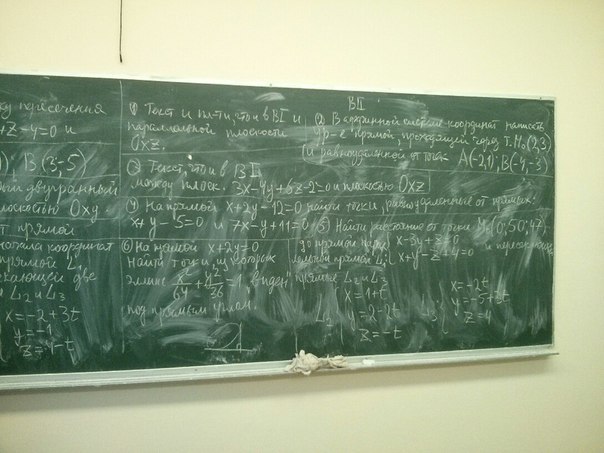 пересечения
+z-y=0 и
B(3;-5)
двугранный
Oxy
прямой
координат
прямой L1
две
L2 и L3
x=-2+3t
y=-1
z=1-t
BII
1) Текст и пл-ти, что и в BI и
параллельной плоскости
Oxz.
2) В аффинной системе координат написать
ур-е прямой, проходящей через т. M0(2,3)
и равноудаленной от точек A(-2,1), B(-4,-3)
3) Текст, что и в BI
между плоск. 3x-4y+6z-2=0 и плоскостью Oxz
4) На прямой x+2y-12=0 найти точки, равноудаленные от прямых
x+y-5=0 и 7x-y+11=0
5) Найти расстояние от точки M(0;50;47)
до прямой
x-3y+z=0
x+y-z+4=0
6) На прямой x+2y=0
найти точки, из которых
эллипс x²/64+y²/36=1 "виден"
под прямым углом.
прямой L1
и
прямые L2 и L3
L2
x=1+t
y=2-2t
z=-t
L3
x=-2t
y=-5+3t
z=4